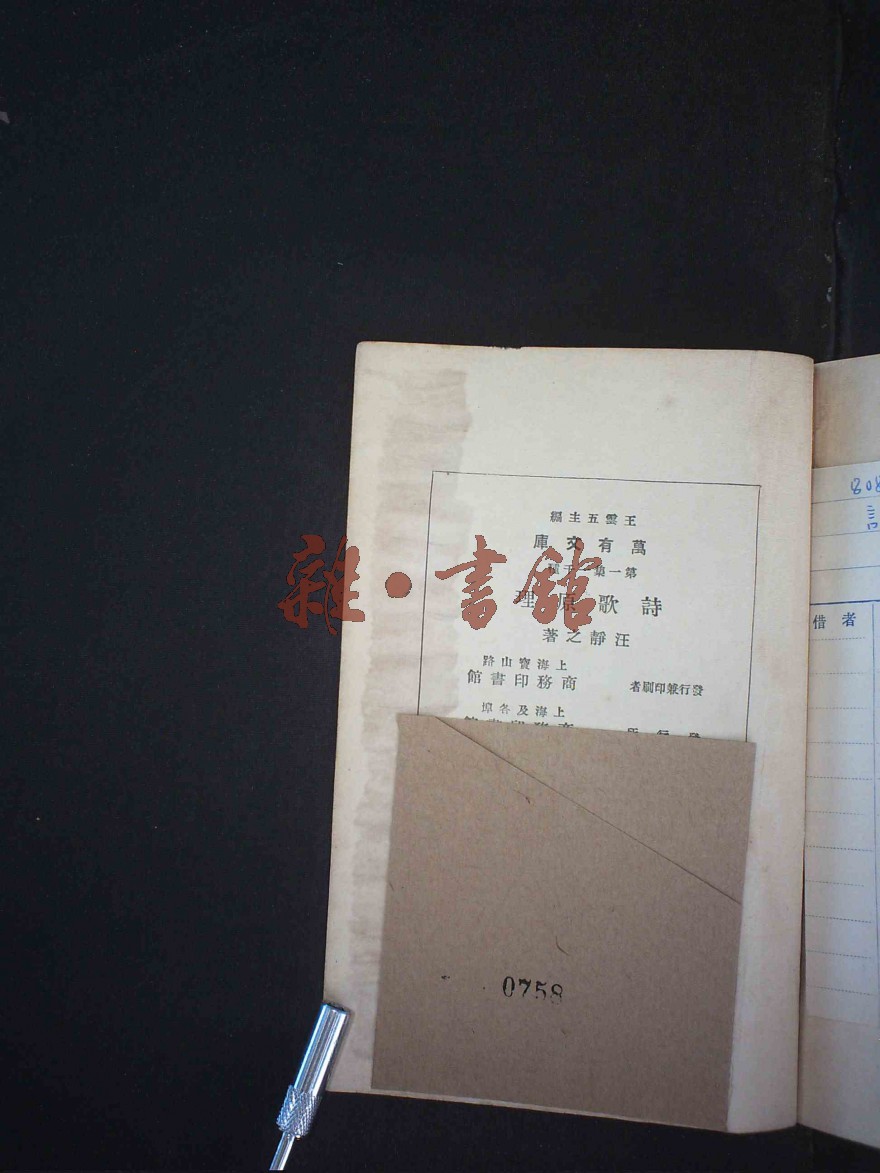 王雲五主編
萬有文庫
第一集一千種
詩歌原理
汪靜之著
上海寶山路
發行兼印刷者 商務印書館
上海及各埠
發行所 商務印書館
0758
808
借者
雜·書館